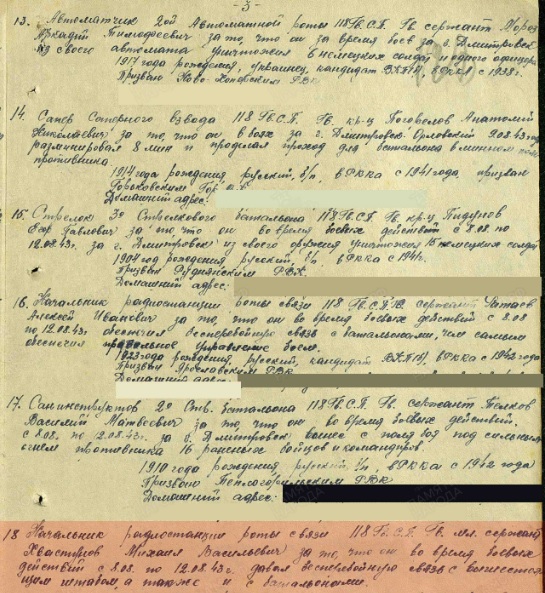 - 3 -
13. Автоматчик 2ой Автоматной роты 118 Гв.С.П. Гв. сержант Мороз
Аркадий Тимофеевич за то, что он за время боев за г. Дмитровск
из своего автомата уничтожил 6 немецких солдат и одного офицера
1917 года рождения, украинец, кандидат ВКП(б), в РККА с 1938 г.
Призван РВК
14. Сапер Саперного взвода 118 Гв.С.П. Гв. кр-ц Анатолий
Николаевич за то, что он в боях за г. Дмитровск-Орловский 9.08.43 года
разминировал 8 мин и проделал проход для батальона в минном поле
противника.
1914 года рождения, русский, б/п, в РККА с 1941 года, призван
Горьковским Гор.
Домашний адрес:
15. Стрелок 3го Стрелкового батальона 118 Гв.С.П. Гв. кр-ц
Павлович за то, что он во время боевых действий с 8.08. по
12.08.43 г. за г. Дмитровск из своего оружия уничтожил 15 немецких солдат
1904 год рождения, русский, б/п. в РККА с 1941 г.
Призван Руднянским РВК
Домашний адрес:
16. Начальник радиостанции роты связи 118 Гв.С.П. Гв. сержант
Алексей Иванович за то, что он во время боевых действий с 8.08
по 12.08.43 г. обеспечил бесперебойную связь с батальонами, чем самым
обеспечил управление боем.
1923 года рождения, русский, кандидат ВКП(б), в РККА с 1942 года
Призван Ярославским РВК
Домашний адрес
17. Санинструктор 2го Стр. батальона 118 Гв.С.П. Гв. сержант
Василий Матвеевич за то, что он во время боевых действий
с 8.08. по 12.08.43 г. за г. Дмитровск вынес с поля боя под сильным
огнем противника 16 раненых бойцов и командиров.
1910 года рождения, русский, б/п, в РККА с 1942 года
Призван Теплогорским РВК
Домашний адрес:
18 Начальник радиостанции роты связи 118 Гв.С.П. Гв. мл. сержант
Хвастунов Михаил Васильевич за то, что он во время боевых
действий с 8.08. по 12.08.43 г. давал бесперебойную связь с вышестоя-
щим штабом, а также и с батальонами.